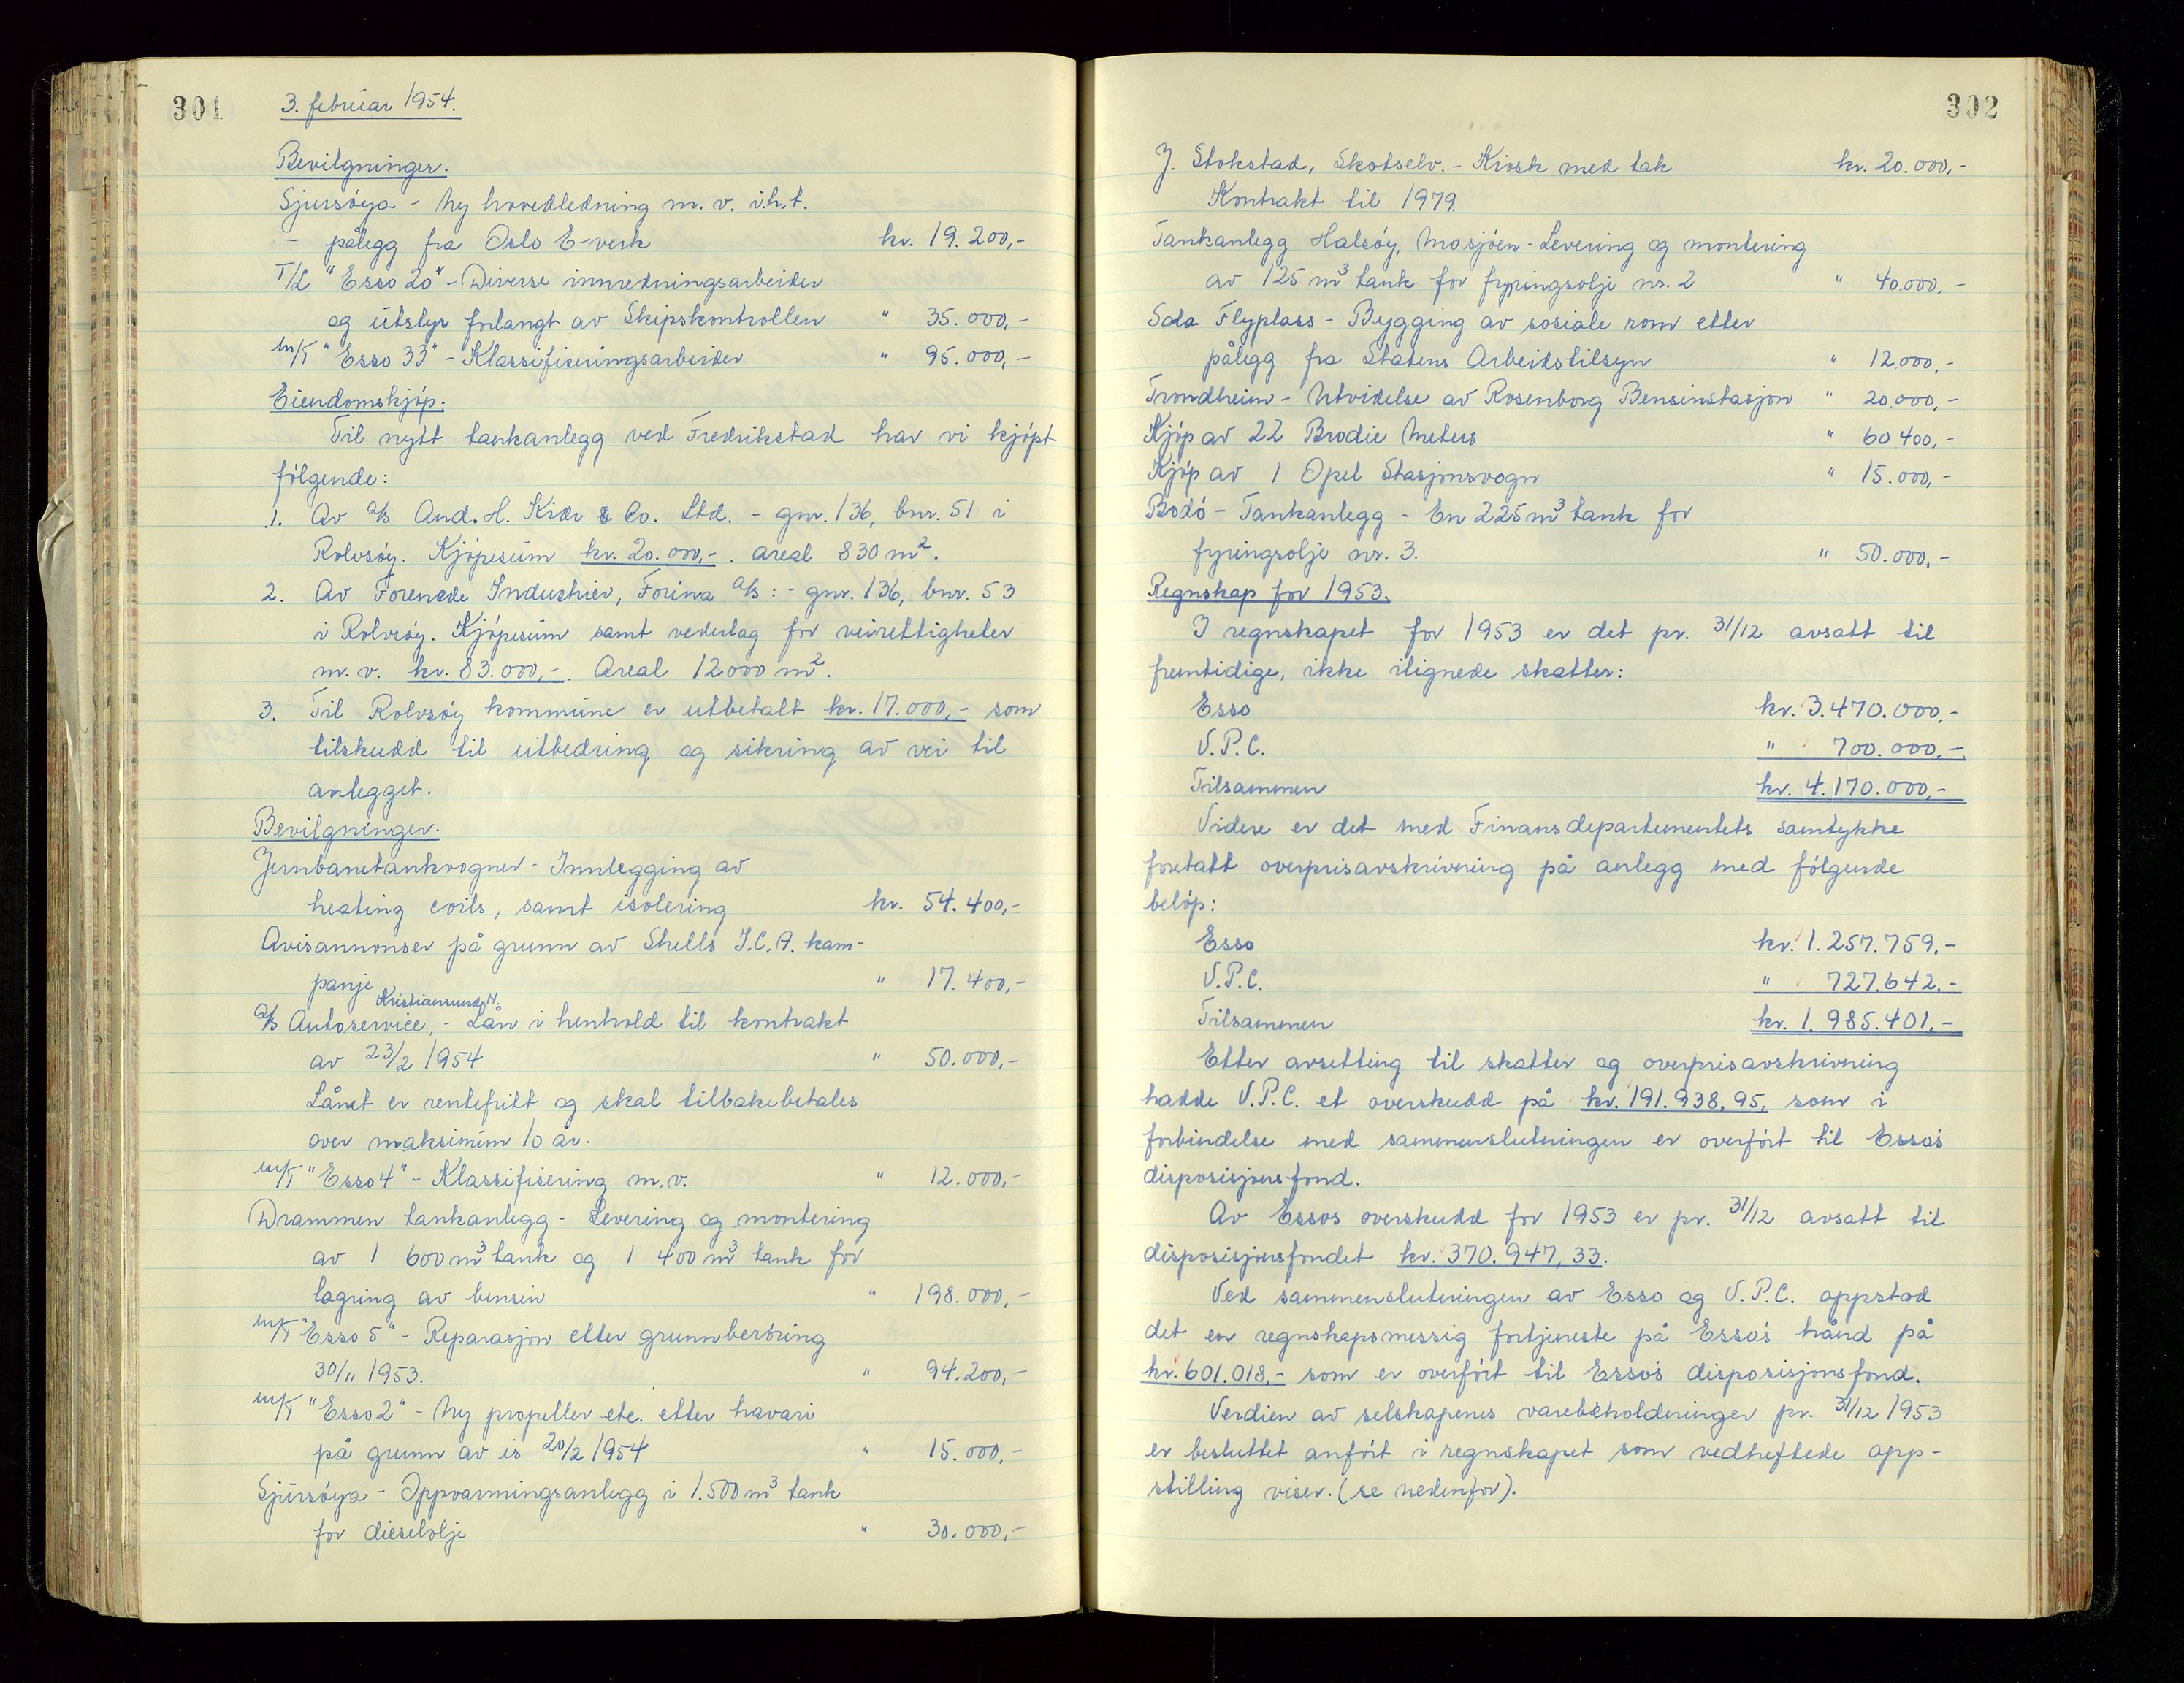 301
3. februar 1954.
Bevilgninger.
Sjursøya - Ny hovedledning m. v. i.h.t.
- pålegg fra Oslo E-verk kr. 19.200,-
T/L "Esso 20" - Diverse innredningsarbeider
og utstyr forlangt av Skipskontrollen " 35.000,-
M/T "Esso 33" - Klassifiseringsarbeider " 95.000,-
Eiendomskjøp.
Til nytt tankanlegg ved Fredrikstad har vi kjøpt
følgende:
1. Av A/S And. H. Kiær & Co. Ltd. - gnr. 136, bnr. 51 i
Rolvsøy. Kjøpesum kr. 20.000,-. Areal 830 m².
2. Av Forenede Industrier, Forina A/S: - gnr. 136, bnr. 53
i Rolvsøy. Kjøpesum samt vederlag for veirettigheter
m. v. kr. 83.000,-. Areal 12000 m².
3. Til Rolvsøy kommune er utbetalt kr. 17.000,- som
tilskudd til utbedring og sikring av vei til
anlegget.
Bevilgninger.
Jernbanetankvogner - Innlegging av
heating coils, samt isolering kr. 54.400,-
Avisannonser på grunn av Shells I.C.A. kam-
panje " 17.400,-
Kristiansund N.
A/S Autoservice, - Lån i henhold til kontrakt
av 23/2 1954 " 50.000,-
Lånet er rentefritt og skal tilbakebetales
over maksimum 10 år.
M/T "Esso 4" - Klassifisering m.v. " 12.000,-
Drammen tankanlegg - Levering og montering
av 1 600 m³ tank og 1 400 m³ tank for
lagring av bensin " 198.000,-
M/T "Esso 5" - Reparasjon etter grunnberøring
30/11 1953. " 94.200,-
M/T "Esso 2" - Ny propeller etc. etter havari
på grunn av is 20/2 1954 " 15.000,-
Sjursøya - Oppvarmingsanlegg i 1.500 m³ tank
for dieselolje " 30.000,-
302
J. Stokstad, Skotselv. - Kiosk med tak kr. 20.000,-
Kontrakt til 1979.
Tankanlegg Halsøy, Mosjøen - Levering og montering
av 125 m³ tank for fyringsolje nr. 2 " 40.000,-
Sola Flyplass - Bygging av sosiale rom etter
pålegg fra Statens Arbeidstilsyn " 12.000,-
Trondheim - Utvidelse av Rosenborg Bensinstasjon " 20.000,-
Kjøp av 22 Brodie Meters " 60.400,-
Kjøp av 1 Opel Stasjonsvogn " 15.000,-
Bodø - Tankanlegg - En 225 m³ tank for
fyringsolje nr. 3. " 50.000,-
Regnskap for 1953.
I regnskapet for 1953 er det pr. 31/12 avsatt til
fremtidige, ikke ilignede skatter:
Esso kr. 3.470.000,-
V.P.C. " 700.000,-
Tilsammen kr. 4.170.000,-
Videre er det med Finansdepartementets samtykke
foretatt overprisavskrivning på anlegg med følgende
beløp:
Esso kr. 1.257.759,-
V.P.C. " 727.642,-
Tilsammen kr. 1.985.401,-
Etter avsetting til skatter og overprisavskrivning
hadde V.P.C. et overskudd på kr. 191.938,95, som i
forbindelse med sammenslutningen er overført til Esso's
disposisjonsfond.
Av Essos overskudd for 1953 er pr. 31/12 avsatt til
disposisjonsfondet kr. 370.947,33.
Ved sammenslutningen av Esso og V.P.C. oppstod
det en regnskapsmessig fortjeneste på Esso's hånd på
kr. 601.018,- som er overført til Esso's disposisjonsfond.
Verdien av selskapenes varebeholdninger pr. 31/12 1953
er besluttet anført i regnskapet som vedheftede opp-
stilling viser. (se nedenfor).